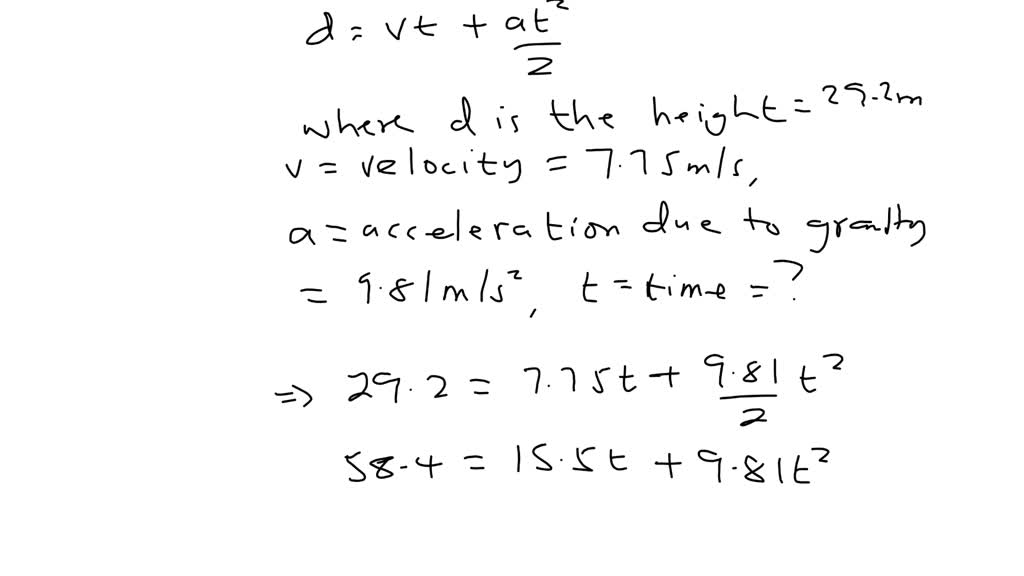 d = vt + at²/2
where d is the height = 29.2m
v = velocity = 7.75m/s,
a = acceleration due to gravity
= 9.81m/s², t = time = ?
⇒ 29.2 = 7.75t + 9.81/2 t²
58.4 = 15.5t + 9.81t²